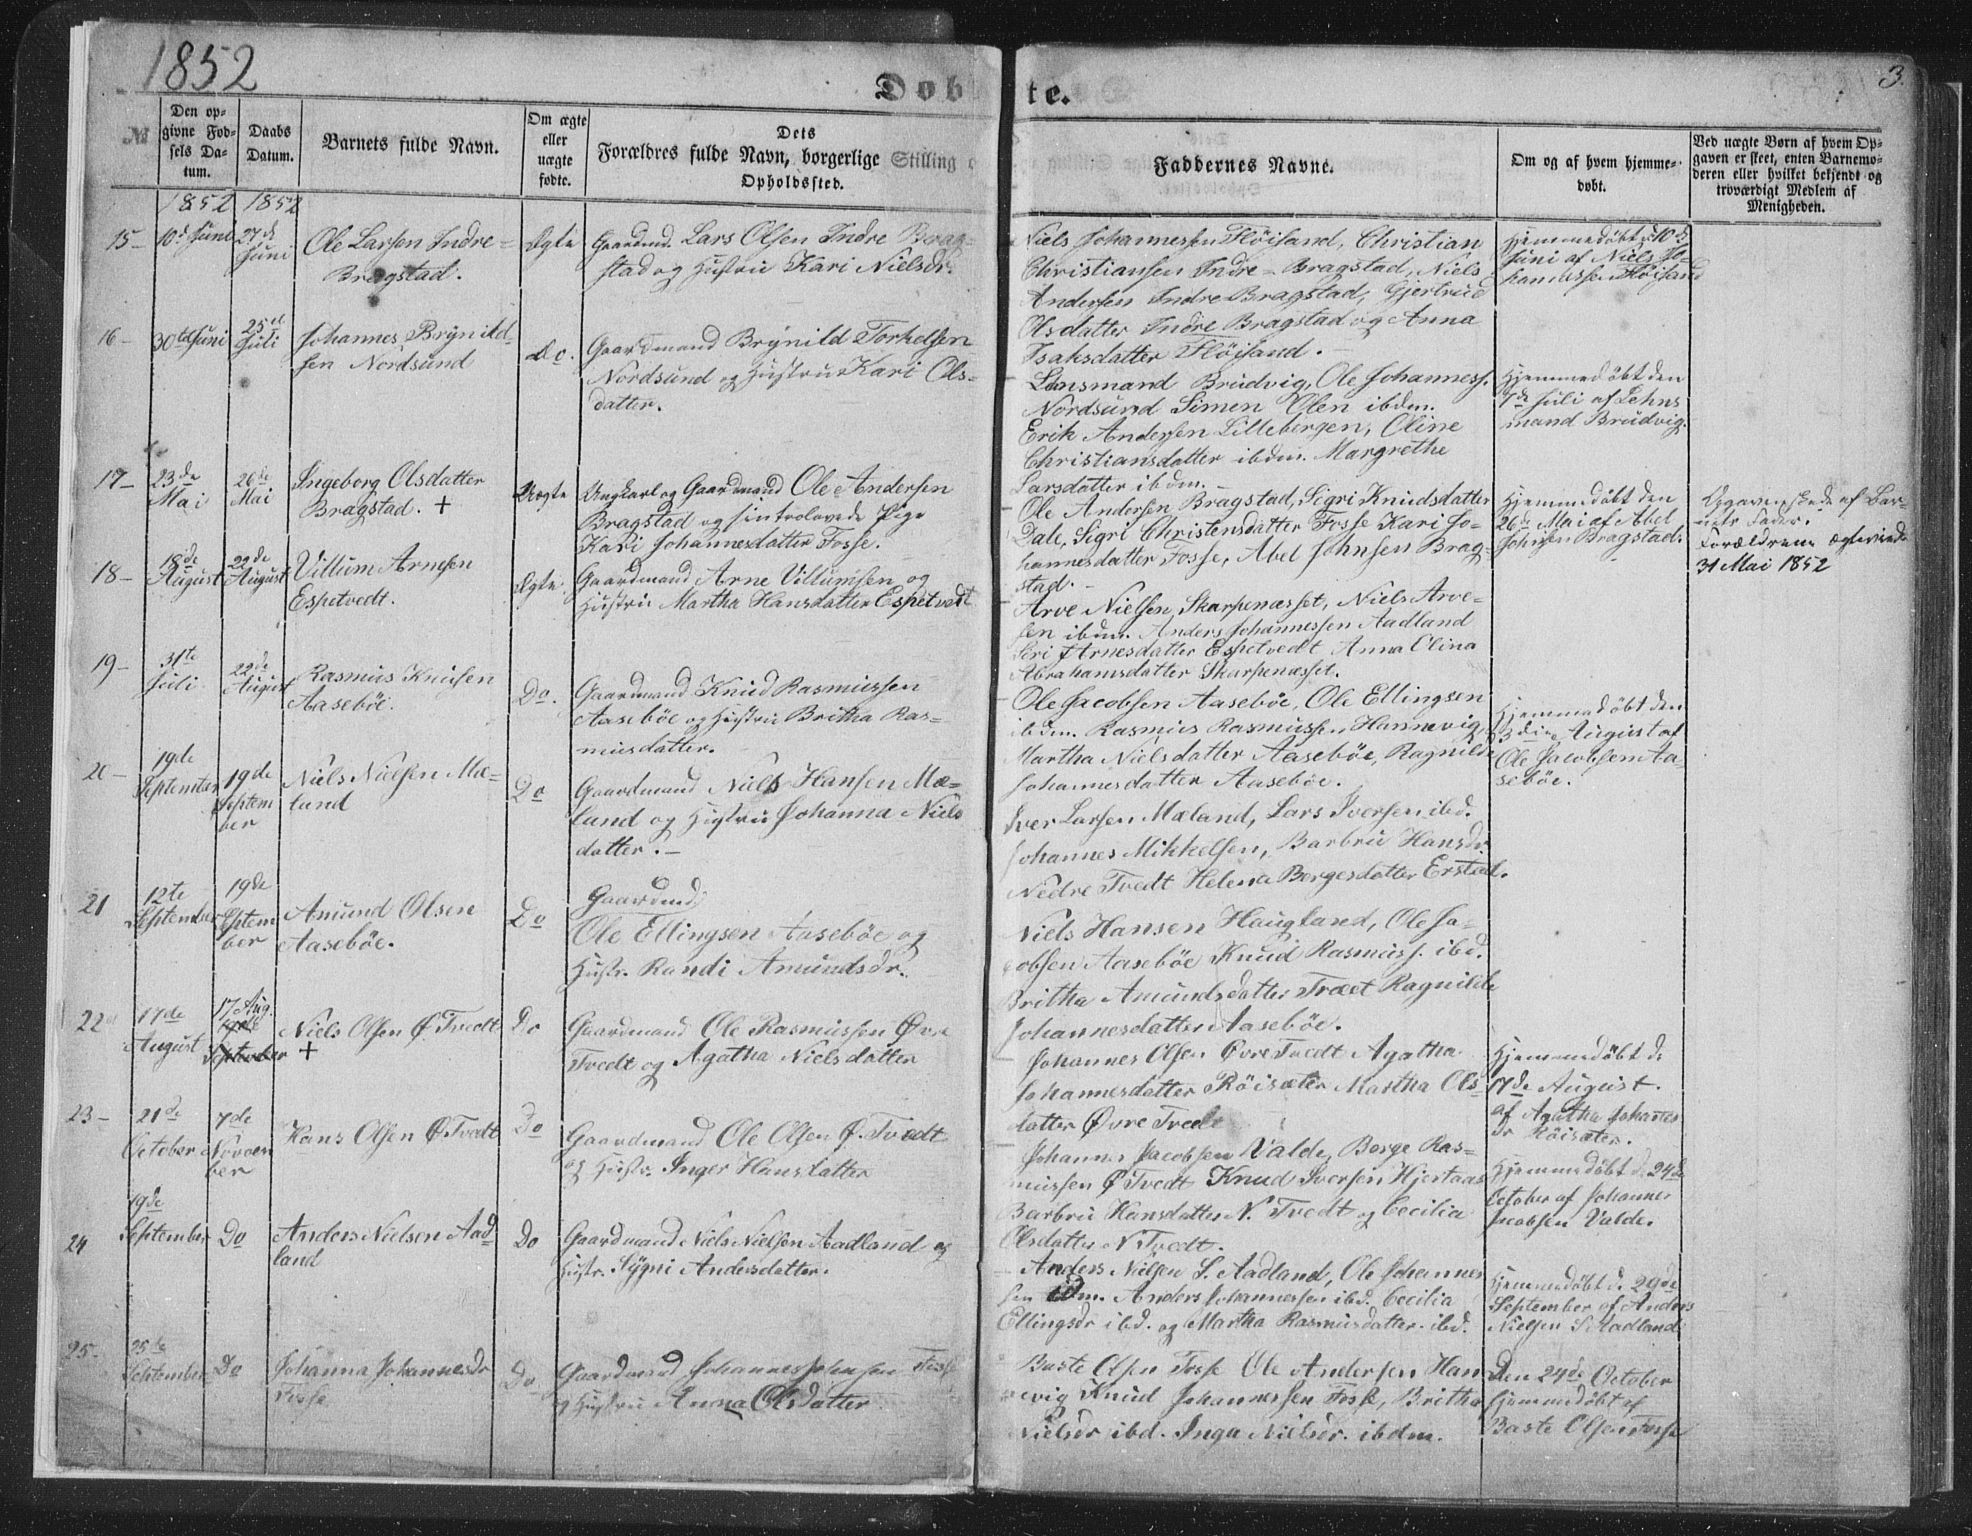 1852
3.
Døbte.
№
Den opgivne Fødsels Datum.
Daabs Datum.
Barnets fulde Navn.
Om ægte eller uægte fødte.
Dets Forældres fulde Navn, borgerlige Stilling o
Opholdssted.
Faddernes Navne.
Om og af hvem hjemmedøbt.
Ved uægte Børn af hvem Opgaven er skeet, enten Barnemoderen eller hvilket bekjendt og troværdigt Medlem af Menigheden.
1852 1852
15- 10de Juni 27de Juni
Ole Larsen Indre=
Bragstad.
Ægte
Gaardmd. Lars Olsen Indre Brag=
stad og Hustrue Kari Nielsdr.
Niels Johannessen Fløisand, Christian
Christiansen Indre=Bragstad, Niels
Andersen Indre Bragstad, Gjertrud
Olsdatter Indre Bragstad og Anna
Isaksdatter Fløisand.
Hjemmedøbt d. 10de
Juni af Niels Jo=
hannessen Fløisand
16- 30te Juni 25de Juli
Johannes Brynild=
sen Nordsund
Do.
Gaardmand Brynild Torkelsen
Nordsund og Hustrue Kari Ols=
datter.
Lensmand Brudvig, Ole Johanness.
Nordsund Simen Olen ibdm.
Erik Andersen Lillebergen, Oline
Christiansdatter ibdm. Margrethe
Larsdatter ibdm.
Hjemmedøbt den
7de Juli af Lehns
mand Brudvig.
17- 23de Mai 26de Mai
Ingeborg Olsdatter
Bragstad. +
Uægte
Ungkarl og Gaardmand Ole Andersen
Bragstad og sin trolovede Pige
Kari Johannesdatter Fosse.
Ole Andersen Bragstad, Sigri Knudsdatter
Dale, Sigri Christensdatter Fosse Kari Jo=
hannesdatter Fosse, Abel Johnsen Brag=
stad.
Hjemmedøbt den
26de Mai af Abel
Johnsen Bragstad.
Opgaven skede af Bar=
nets Fader.
Forældrene ægteviede
31 Mai 1852
18- 18de August 22de August
Villum Arnesen
Espetvedt.
Ægte.
Gaardmand Arne Villumsen og
Hustrue Martha Hansdatter Espetvedt
Arve Nielsen Skarpenæsset, Niels Arve=
sen ibdm. Anders Johannessen Aadland
Siri Arnesdatter Espetvedt Anna Olina
Abrahamsdatter Skarpenæsset.
19- 31te Juli 22de August
Rasmus Knusen
Aasebøe.
Do.
Gaardmand Knud Rasmussen
Aasebøe og Hustrue Britha Ras=
musdatter.
Ole Jacobsen Aasebøe, Ole Ellingsen
ibdm. Rasmus Rasmussen Hannevig,
Martha Nielsdatter Aasebøe, Ragnilda
Johannesdatter Aasebøe.
Hjemmedøbt den
3die August af
Ole Jacobsen Aa=
sebøe.
20- 19de September 19de September
Niels Nielsen Mæ=
land
Do
Gaardmand Niels Hansen Mæ=
land og Hustrue Johanna Niels
datter.-
Iver Larsen Mæland, Lars Iversen ibd.
Johannes Mikkelsen, Barbru Hansdr.
Nedre Tvedt Helena Børgesdatter Erstad.
21 12te September 19de September
Amund Olsen
Aasebøe.
Do
Gaardmd.
Ole Ellingsen Aasebøe og
Hustr. Randi Amundsdr.
Niels Hansen Haugland, Ole Ja=
cobsen Aasebøe Knud Rasmuss. ibd.
Britha Amundsdatter Træet Ragnilde
Johannesdatter Aasebøe.
22 17de August 17 Aug. September
Niels Olsen Ø. Tvedt
+
Do
Gaardmand Ole Rasmussen Øvre
Tvedt og Agatha Nielsdatter
Johannes Olsen Øvre Tvedt Agatha
Johannesdatter Røisæter Martha Ols=
datter Øvre Tvedt
Hjemmedøbt d.
17de August.
af Agatha Johannes
dr Røisæter.
23- 21de October 7de November
Hans Olsen Ø. Tvedt
Do
Gaardmand Ole Olsen Ø. Tvedt
og Hustr. Inger Hansdatter
Johannes Jacobsen Valde, Børge Ras=
mussen Ø Tvedt Knud Iversen Hjertaas
Barbru Hansdatter N. Tvedt og Cecilia
Olsdatter N Tvedt.
Hjemmedøbt d. 24de
October af Johannes
Jacobsen Valde.
24 19de September Do
Anders Nielsen Aad
land
Do
Gaardmand Niels Nielsen Aadland og
Hustr. Sygni Andersdatter.
Anders Nielsen S. Aadland, Ole Johannes
sen ibdm. Anders Johannessen ibd. Cecilia
Ellingsdr ibd. og Martha Rasmusdatter ibd.
Hjemmedøbt d. 29de
September af Anders
Nielsen S. Aadland
25- 25de September Do
Johanna Johannesdr
Fosse
Do
Gaardmand Johannes Johnsen Fosse
og Hustrue Anna Olsdatter
Baste Olsen Fosse Ole Andersen Han
nevig Knud Johannessen Fosse, Britha
Nielsdr ibd. Inga Nielsdr. ibdm.
Den 24de October
hjemmedøbt af
Baste Olsen Fosse